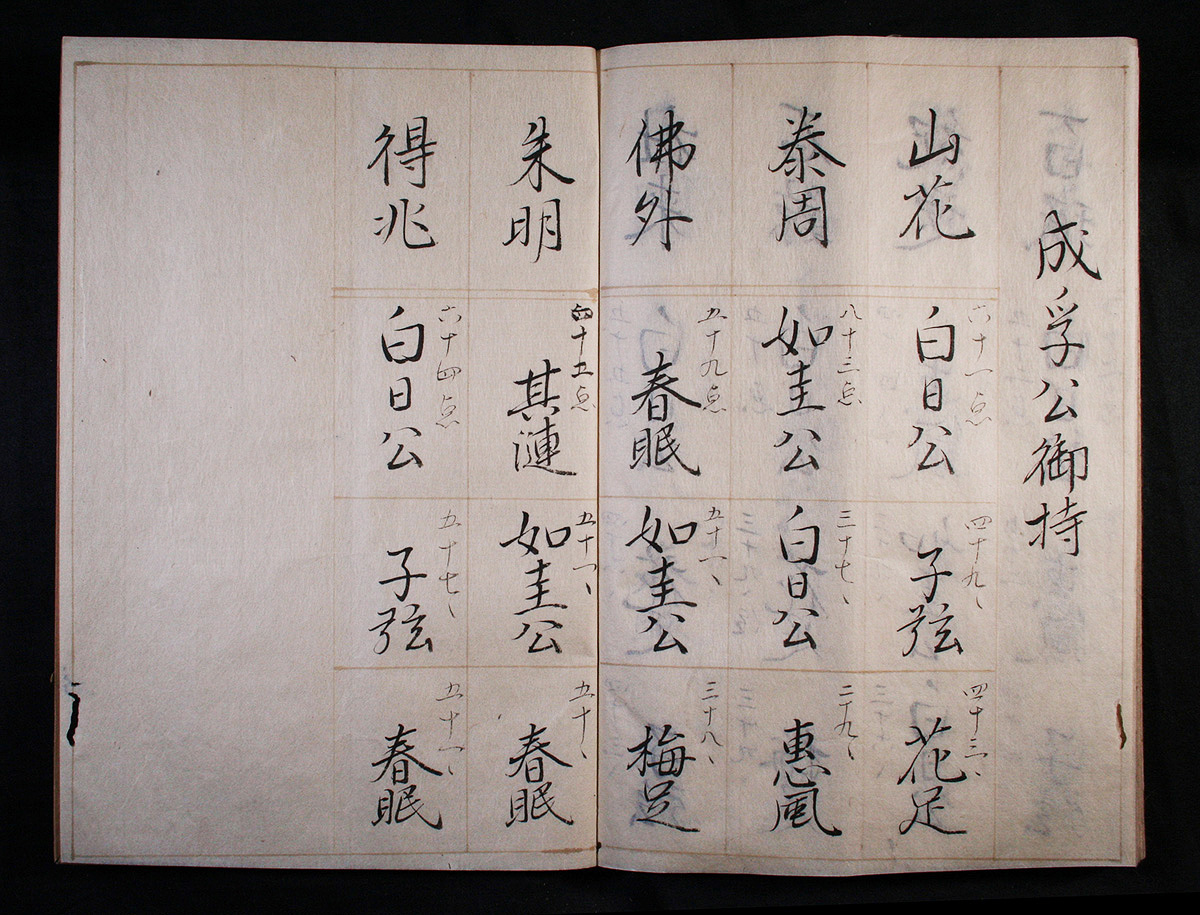 成孚公御持
山花
六十一点
白日公
四十九、
子弦
四十三、
花足
泰周
八十三点
如圭公
三十七、
白日公
二十九、
惠風
佛外
五十九点
春眠
五十一、
如圭公
三十八、
梅足
朱明
四十五点
其漣
五十一、
如圭公
五十、
春眠
得兆
六十四点
白日公
五十七、
子弦
五十一、
春眠